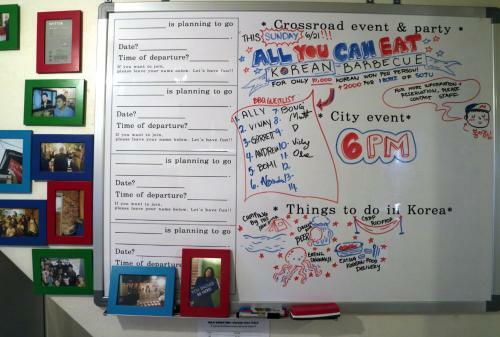 is planning to go
Date?
Time of departure?
If you want to join,
please leave your name below. Let's have fun!!
is planning to go
Date?
Time of departure?
If you want to join,
please leave your name below. Let's have fun!!
is planning to go
Date?
Time of departure?
If you want to join,
please leave your name below. Let's have fun!!
is planning to go
Date?
* Crossroad event & party *
THIS SUNDAY 6/21!!!
ALL YOU CAN EAT
KOREAN BARBECUE
FOR ONLY 10,000 KOREAN WON PER PERSON!
+2000 FOR 1 BOTTLE OF SOJU
FOR MORE INFORMATION &
RESERVATION, PLEASE
CONTACT STAFF
BBQ GUESTLIST
1. ALLY 7. BOUG
2. VINAY 8. Matt
3. GARRET 9. D
4. ANDREW 10.
5. BOMI 11.
12.
6. 13.
14.
* City event*
6PM
*Things to do in Korea*
CAMPING BY
EATING
SANNAKJI
EATING
KOREAN FOOD
DELIVERY